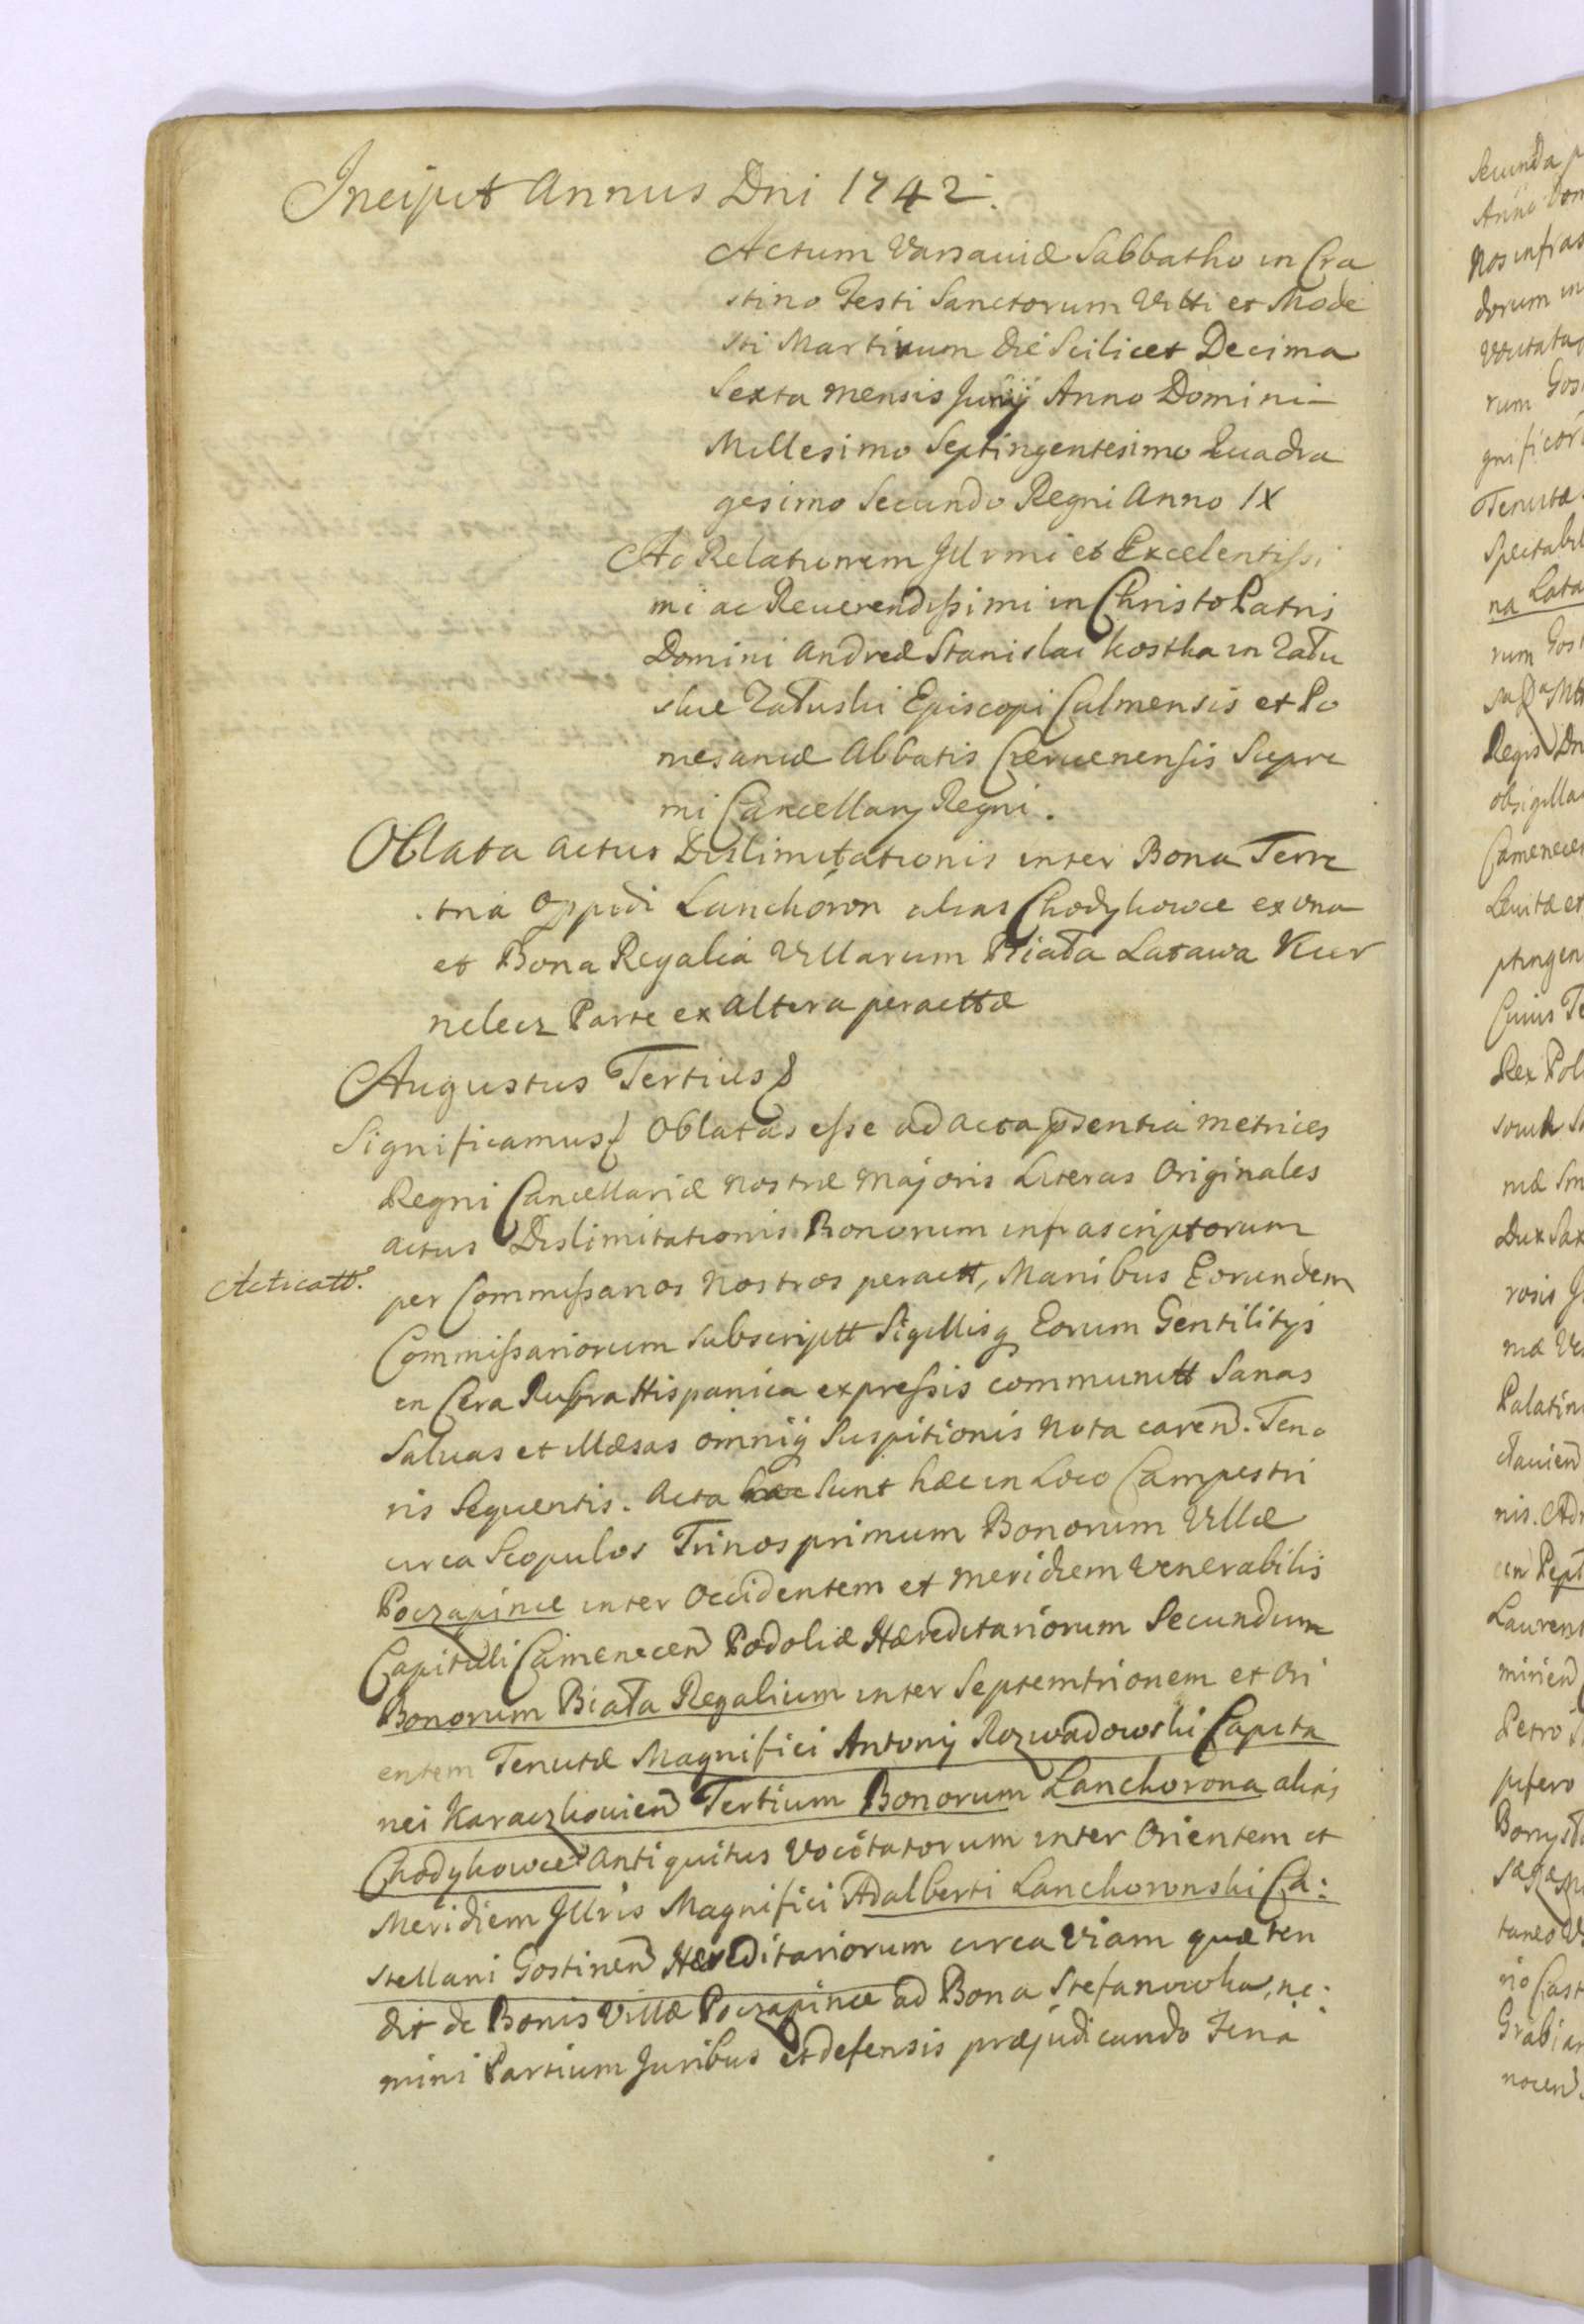 Incipit Annus Dni 1742.
Actum Varsaviæ Sabbatho in Cra
stino Festi Sanctorum Vitti et Mode
sti Martirum die Scilicet Decima
Sexta mensis Junij Anno Domini
Millesimo Septingentesimo Quadra
gesimo Secundo Regni Anno IX
Ad Relationem Illrmi et Excelentissi
mi ac Reverendissimi in Christo Patris
Domini Andreæ Stanislai Kostka in Zału
skie Załuski Episcopi Culmensis et Po
mesaniæ Abbatis Czervenensis Supre
mi Cancellarij Regni.
Oblata actus Dislimitationis inter Bona Terre
stria Oppidi Lanchóron alias Chodykowce ex una
et Bona Regalia Villarum Biała Latawa Kur
nelecz Parte ex altera peracttæ
Augustus Tertius &
Significamus & Oblatas esse ad acta psentia metrices
Regni Cancellariæ nostræ Majoris Literas Originales
actus Dislimitationis Bonorum infrascriptorum
Acticatt.
per Commissarios Nostros peractt, Manibus Eorundem
Commissariorum subscriptt Sigillisq Eorum Gentilitijs
in Cera Rubra Hispanica expressis communitt Sanas
Salvas et Illæsas omniq Suspitionis nota caren. Teno
ris Sequentis. Acta sunt hæc in Loco Campestri
circa Scopulos Trinos primum Bonorum Villæ
Poczapince inter Occidentem et meridiem Venerabilis
Capituli Camenecen Podoliæ Hæreditariorum Secundum
Bonorum Biała Regalium inter Septemtrionem et Ori
entem Tenutæ Magnifici Antonij Rozwadowski Capita
nei Karaczkovien Tertium Bonorum Lanchorona alias
Chodykowce Antiquitus Vocitatorum inter Orientem et
Meridiem Illris Magnifici Adalberti Lanchoronski Ca:
stellani Gostinen Hæreditariorum circa Viam quæ ten
dit de Bonis Villæ Poczapince ad Bona Stefanowka, ne:
mini Partium Juribus et defensis præjudicando Feria